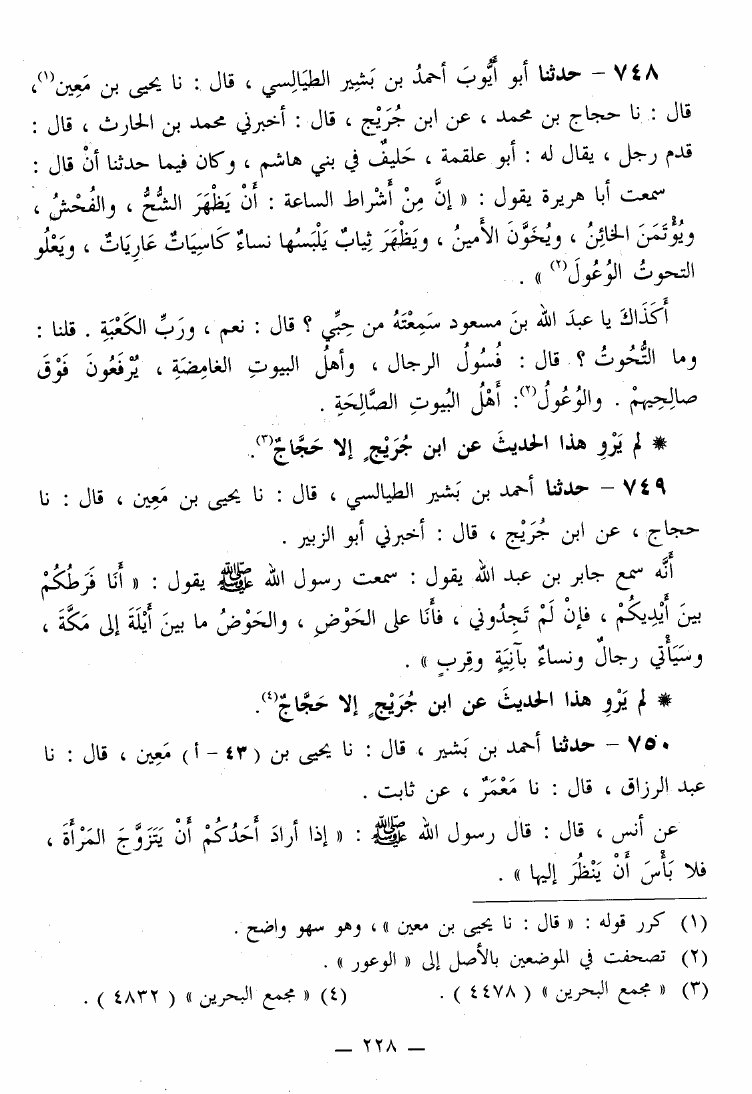 ٧٤٨ - حدثنا أبو أَيُّوبَ أحمدُ بن بَشير الطيَالِسي ، قال : نا يحيى بن مَعِين(١)،
قال : نا حجاج بن محمد ، عن ابن جُرَيْج ، قال : أخبرني محمد بن الحارث ، قال :
قدم رجل ، يقال له : أبو علقمة ، حَليفٌ في بني هاشم ، وكان فيما حدثنا أنْ قال :
سمعت أبا هريرة يقول : « إنَّ مِنْ أَشْراط الساعة : أَنْ يَظْهَرَ الشُّحُّ ، والفُحْشُ ،
ويُؤْتَمَنَ الخائِنُ ، ويُخَوَّنَ الأَمينُ ، ويَظْهَرَ ثِيابٌ يَلْبَسُها نساءٌ كَاسِيَاتٌ عَارِيَاتٌ ، ويَعْلُو
التحوتُ الوُعُولَ(٢) » .
أَكَذَاكَ يا عبدَ الله بنَ مسعود سَمِعْتَهُ من حِبِّي ؟ قال : نعم ، ورَبِّ الكَعْبَةِ . قلنا :
وما التُّحُوتُ ؟ قال : فُسُولُ الرجال ، وأهلُ البيوتِ الغامِضَةِ ، يُرْفَعُونَ فَوْقَ
صالِحِيهِمْ . والوُعُولُ(٢): أَهْلُ البُيوتِ الصَّالِحَةِ .
* لم يَرْوِ هذا الحديثَ عن ابن جُرَيْجٍ إلا حَجَّاجٌ(٣).
٧٤٩ - حدثنا أحمد بن بَشير الطيالسي ، قال : نا يحيى بن مَعِين ، قال : نا
حجاج ، عن ابن جُرَيْج ، قال : أخبرني أبو الزبير .
أَنَّه سمع جابر بن عبد الله يقول : سمعت رسول الله ﷺ يقول : « أَنَا فَرَطُكُمْ
بينَ أَيْدِيكُمْ ، فإنْ لَمْ تَجِدُوني ، فأَنَا على الحَوْضِ ، والحَوْضُ ما بينَ أَيْلَةَ إلى مَكَّةَ ،
وسَيَأْتي رجالٌ ونساءٌ بآنِيَةٍ وقِربٍ » .
* لم يَرْوِ هذا الحديثَ عن ابن جُرَيْجٍ إلا حَجَّاجٌ(٤).
٧٥٠ - حدثنا أحمد بن بَشير ، قال : نا يحيى بن (٤٣ - أ) مَعِين ، قال : نا
عبد الرزاق ، قال : نا مَعْمَرٌ ، عن ثابت .
عن أنس ، قال : قال رسول الله ﷺ : « إذا أرادَ أَحَدُكُمْ أَنْ يَتَزَوَّجَ المَرْأَةَ ،
فلا بَأْسَ أَنْ يَنْظُرَ إليها » .
(١) كرر قوله : « قال : نا يحيى بن معين »، وهو سهو واضح .
(٢) تصحفت في الموضعين بالأصل إلى « الوعور » .
(٣) « مجمع البحرين » ( ٤٤٧٨ ) . (٤) « مجمع البحرين » ( ٤٨٣٢ ) .
— ٢٢٨ —